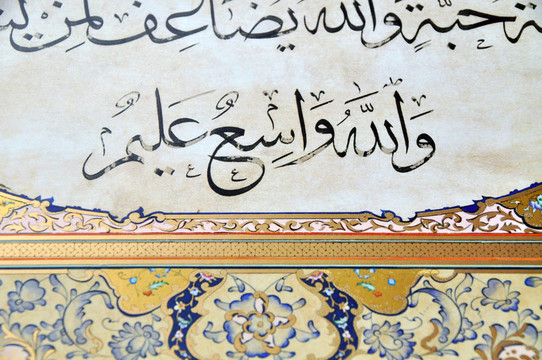 ة حَبَّةٍ وَاللّٰهُ يُضَاعِفُ لِمَنْ
وَاللّٰهُ وَاسِعٌ عَلِيمٌ